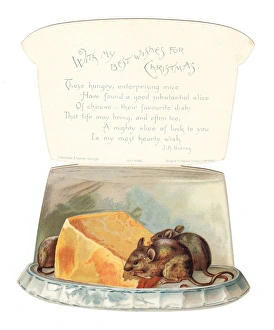 WITH MY
BEST WISHES FOR
CHRISTMAS
These hungry, enterprising mice
Have found a good substantial slice
Of cheese – their favourite dish;
That life may bring, and often too,
A mighty slice of luck to you
Is my most hearty wish.